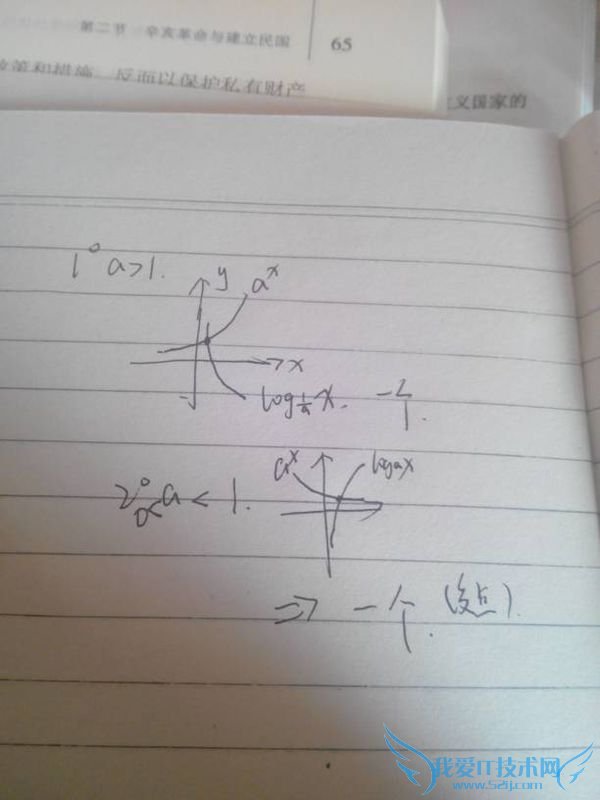 第二节 辛亥革命与建立民国 65
政策和措施，反而以保护私有财产
义国家的
1° a>1.
y
a^x
x
log_{1/a} x. 一个.
a^x
log_a x
2° 0<a<1.
⇒ 一个 (交点).
我爱IT技术网
www.52ij.com